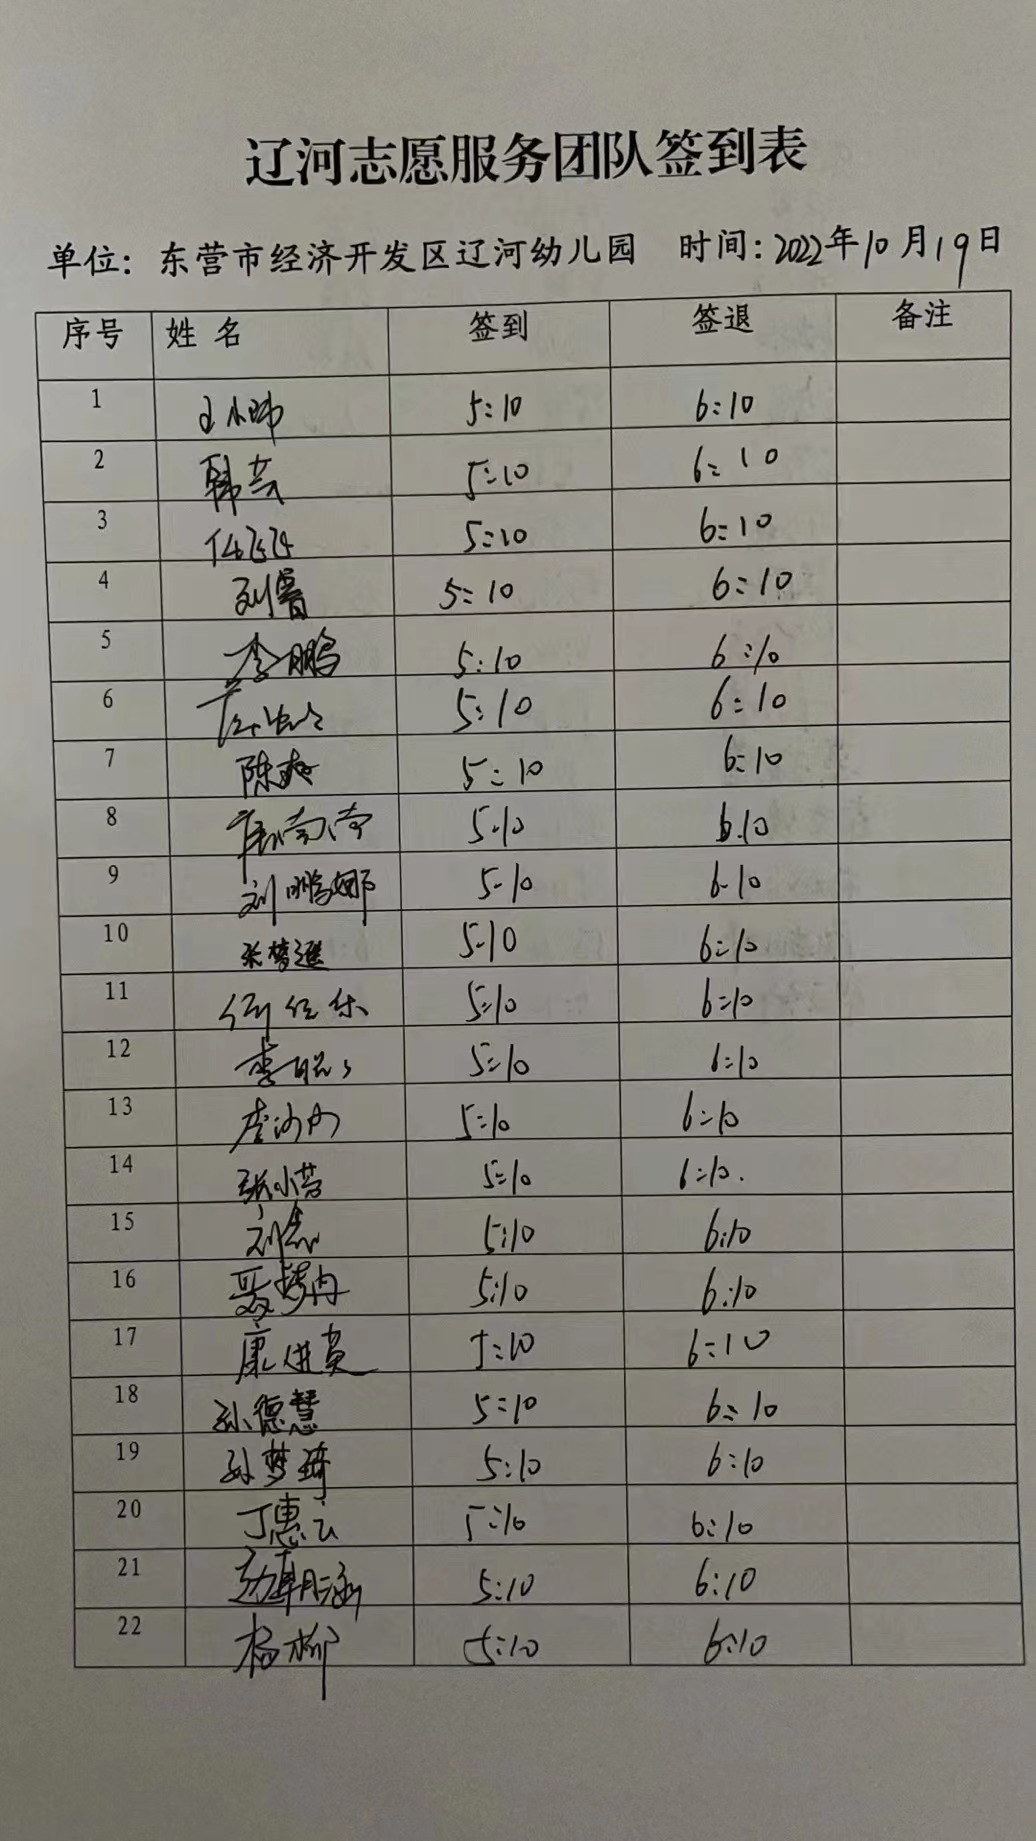 辽河志愿服务团队签到表
单位：东营市经济开发区辽河幼儿园 时间：2022年10月19日
序号 姓 名 签到 签退 备注
1 5:10 6:10
2 韩芸 5:10 6:10
3 5:10 6:10
4 刘 5:10 6:10
5 李鹏 5:10 6:10
6 5:10 6:10
7 陈 5:10 6:10
8 5.10 6.10
9 刘鹏娜 5-10 6-10
10 张梦遥 5-10 6:10
11 5:10 6:10
12 李聪聪 5:10 6:10
13 5:10 6:10
14 张小营 5:10 6:10.
15 刘磊 5:10 6:10
16 聂梦冉 5:10 6:10
17 康进英 5:10 6:10
18 孙德慧 5:10 6:10
19 孙梦琦 5:10 6:10
20 丁惠云 5:10 6:10
21 5:10 6:10
22 杨柳 5:10 6:10